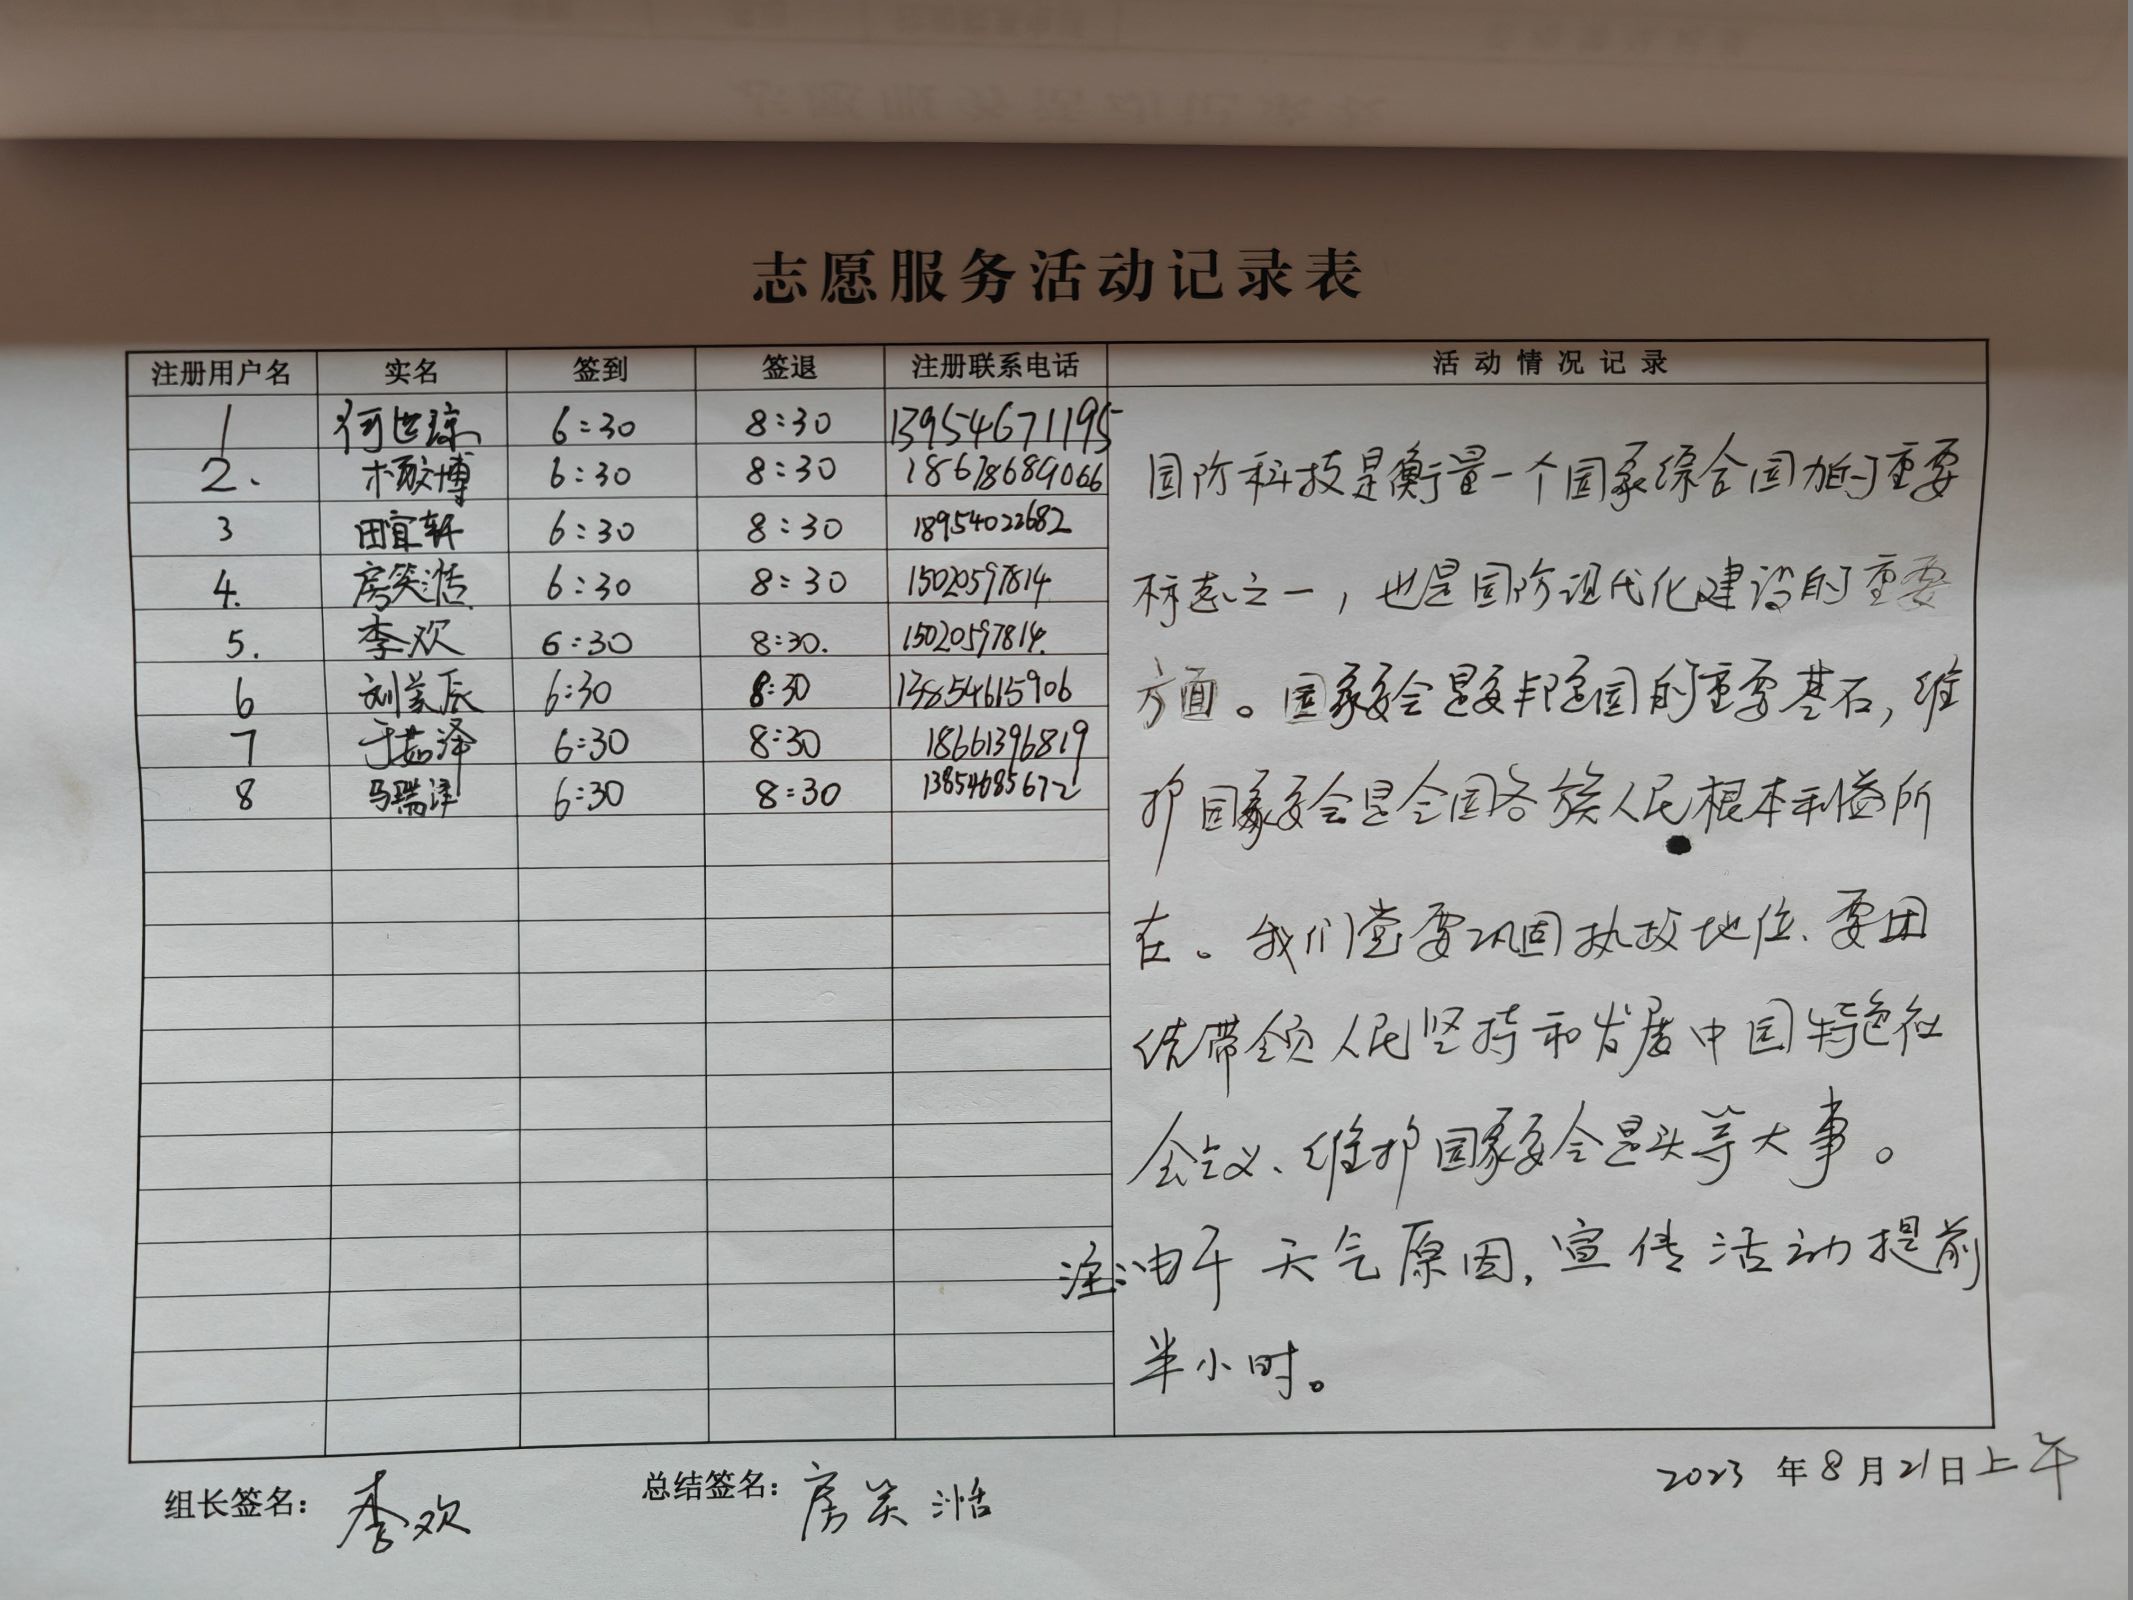 志愿服务活动记录表
注册用户名 实名 签到 签退 注册联系电话 活动情况记录
1 何世琼 6:30 8:30 13954671195
2. 8:30 6:30 18678689066
3 田宜轩 6:30 8:30 18954022682
4. 房笑湉 6:30 8:30 15020597814
5. 李欢 6:30 8:30. 15020597814.
6 刘美辰 6:30 8:30 13854615906
7 于茹泽 6:30 8:30 18661396819
8 马瑞泽 6:30 8:30 13854685672
国防科技是衡量一个国家综合国力的重要
标志之一，也是国防现代化建设的重要
方面。国家安全是安邦定国的重要基石，维
护国家安全是全国各族人民根本利益所
在。我们党要巩固执政地位、要团
结带领人民坚持和发展中国特色社
会主义、维护国家安全是头等大事。
注:由于天气原因，宣传活动提前
半小时。
组长签名：李欢 总结签名：房笑湉 2023年8月21日上午